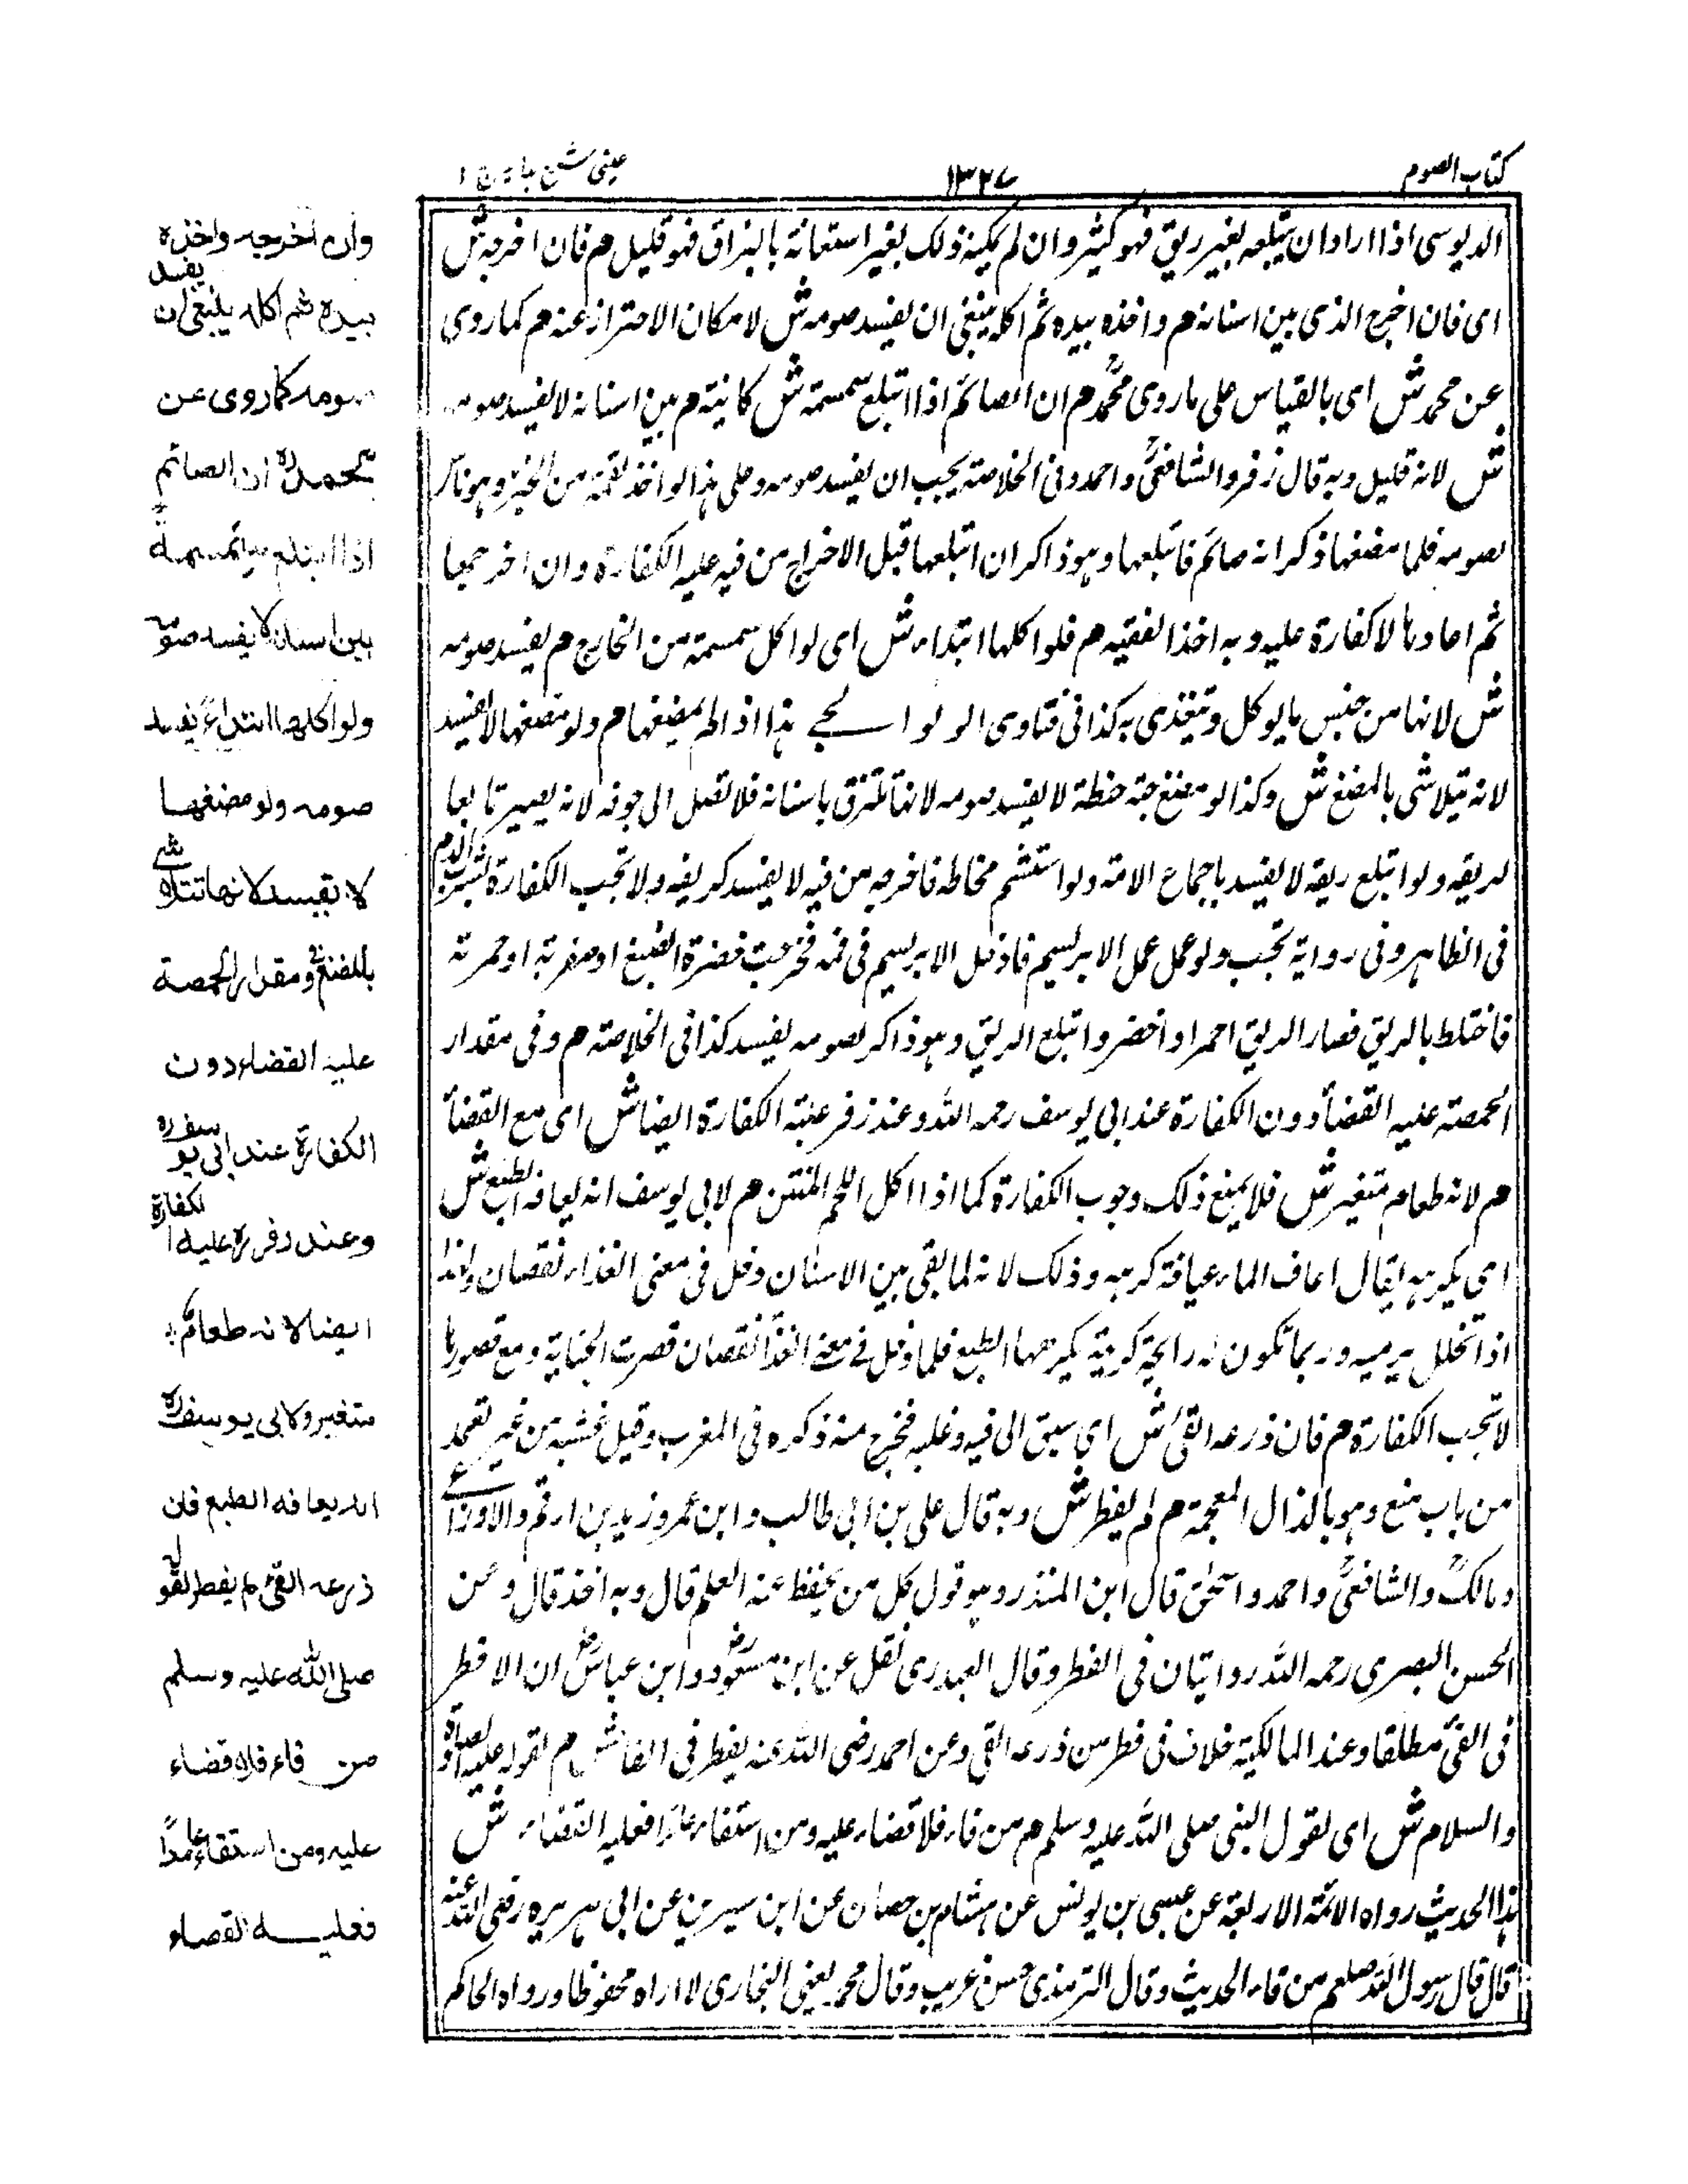 كتاب الصوم
١٣٢٧
عينى شرح هداية ج ١
الدبوسى اذا اراد ان يبتلعه بغير ريق فهو كثير وان لم يمكنه ذلك بغير استعانة بالبزاق فهو قليل م فان اخرجه ش
اى فان اخرج الذى بين اسنانه م واخذه بيده ثم اكله ينبغى ان يفسد صومه ش لامكان الاحتراز عنه م كما روى
عن محمد ش اى بالقياس على ما روى محمد م ان الصائم اذا ابتلع سمسمة ش كائنة م بين اسنانه لا يفسد صومه
ش لانه قليل وبه قال زفر والشافعى واحمد وفى الخلاصة يجب ان يفسد صومه وعلى هذا لو اخذ لقمة من الخبز وهو ناس
لصومه فلما مضغها ذكر انه صائم فابتلعها وهو ذاكر ان ابتلعها قبل الاخراج من فيه عليه الكفارة وان اخرجها
ثم اعادها لا كفارة عليه وبه اخذ الفقيه م فلو اكلها ابتداء ش اى لو اكل سمسمة من الخارج م يفسد صومه
ش لانها من جنس ما يوكل ويتغذى به كذا فى فتاوى الولوالجى هذا اذا لم يمضغها م ولو مضغها لا يفسد
لانه يتلاشى بالمضغ ش وكذا لو مضغ حبة حنطة لا يفسد صومه لانها تلتزق باسنانه فلا تصل الى جوفه لانه يصير تابعا
لريقه ولو ابتلع ريقه لا يفسد باجماع الامة ولو استنشم مخاطه فاخرجه من فيه لا يفسد كريقه ولا تجب الكفارة لشرب الدم
فى الظاهر وفى رواية تجب ولو عمل عمل الابريسم فادخل الابريسم فى فمه فخرجت خضرة الصبغ او صفرته او حمرته
فاختلط بالريق فصار الريق احمر او اخضر وابتلع الريق وهو ذاكر لصومه يفسد كذا فى الخلاصة م وفى مقدار
الحمصة عليه القضاء دون الكفارة عند ابى يوسف رحمه الله وعند زفر عليه الكفارة ايضا ش اى مع القضاء
م لانه طعام متغير ش فلا يمنع ذلك وجوب الكفارة كما اذا اكل اللحم المنتن م لابى يوسف انه يعافه الطبع ش
اى يكرهه يقال اعاف الماء عيافة كرهه وذلك لانه لما بقى بين الاسنان دخل فى معنى الغذاء نقصان ولهذا
اذا تخلل يرميه وربما تكون له رائحة كريهة يكرهها الطبع فلما دخل فى معنى الغذاء نقصان قصرت الجناية ومع قصورها
لا تجب الكفارة م فان ذرعه القئ ش اى سبق الى فيه وغلبه فخرج منه ذكره فى المغرب وقيل غشيه من غير تعمد
من باب منع وهو بالذال المعجمة م لم يفطر ش وبه قال على بن ابى طالب وابن عمر وزيد بن ارقم والاوزاعى
ومالك والشافعى واحمد واسحق قال ابن المنذر وهو قول كل من يحفظ عنه العلم قال وبه اخذ قال وعن
الحسن البصرى رحمه الله روايتان فى الفطر وقال العبدرى نقل عن ابن مسعود وابن عباس ان الافطر
فى القئ مطلقا وعند المالكية خلاف فى فطر من ذرعه القئ وعن احمد رضى الله عنه يفطر فى الفاحش م لقوله عليه الصلوة
والسلام ش اى لقول النبى صلى الله عليه وسلم م من قاء فلا قضاء عليه ومن استقاء عامدا فعليه القضاء ش
هذا الحديث رواه الائمة الاربعة عن عيسى بن يونس عن هشام بن حسان عن ابن سيرين عن ابى هريره رضى الله عنه
قال قال رسول الله صلعم من قاء الحديث وقال الترمذى حسن غريب وقال محمد يعنى البخارى لا اراه محفوظا ورواه الحاكم
وان اخرجه واخذه
بيده ثم اكله ينبغى ان يفسد
صومه كما روى عن
محمد ره ان الصائم
اذا ابتلع سمسمة
بين اسنانه لا يفسد صومه
ولو اكلها ابتداءً يفسد
صومه ولو مضغها
لا يفسد لانها تتلاشى
بالمضغ وفى مقدار الحمصة
عليه القضاء دون
الكفارة عند ابى يوسف ره
وعند زفر ره عليه الكفارة
ايضا لانه طعام
متغير ولابى يوسف ره
انه يعافه الطبع فان
ذرعه القئ لم يفطر لقوله
صلى الله عليه وسلم
من قاء فلا قضاء
عليه ومن استقاء عامداً
فعليه القضاء